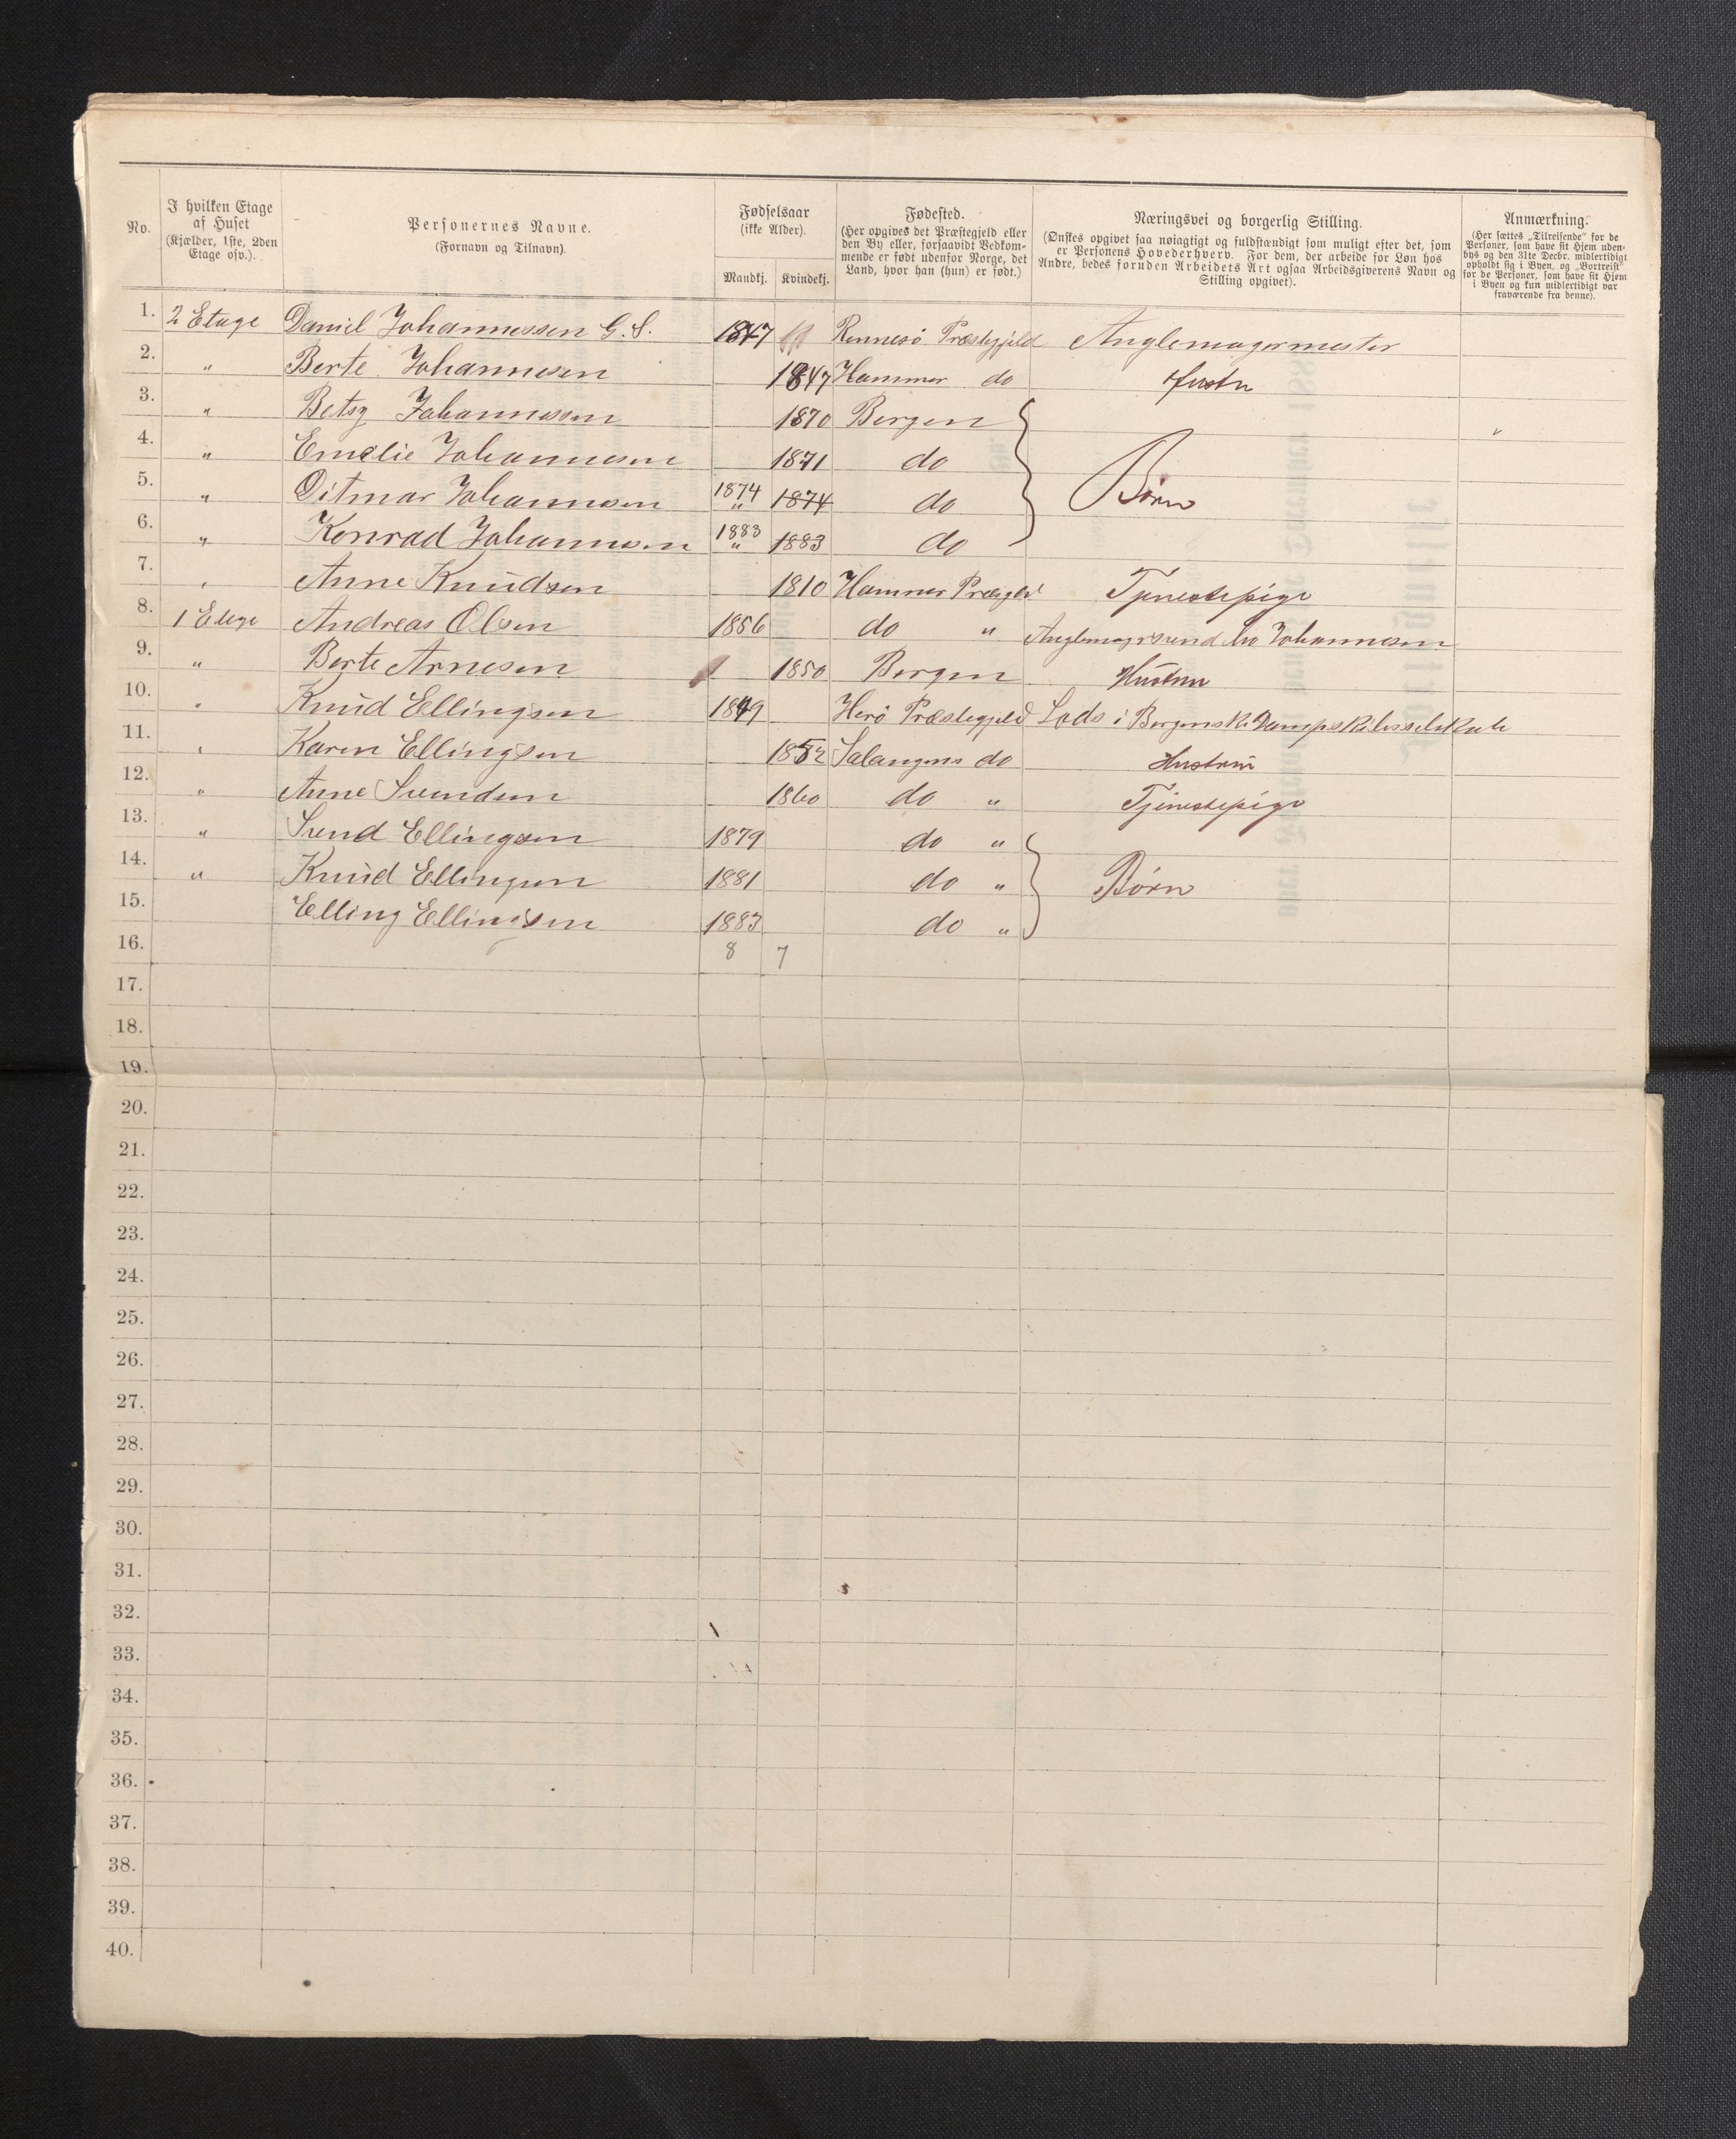 No.
I hvilken Etage
af Huset
(Kjælder, 1ste, 2den
Etage osv.).
Personernes Navne.
(Fornavn og Tilnavn).
Fødselsaar
(ikke Alder).
Mandkj. Kvindekj.
Fødested.
(Her opgives det Præstegjeld eller
den By eller, forsaavidt Vedkom-
mende er født udenfor Norge, det
Land, hvor han (hun) er født.)
Næringsvei og borgerlig Stilling.
(Ønskes opgivet saa nøiagtigt og fuldstændigt som muligt efter det, som
er Personens Hovederhverv. For dem, der arbeide for Løn hos
Andre, bedes foruden Arbeidets Art ogsaa Arbeidsgiverens Navn og
Stilling opgivet).
Anmærkning.
(Her sættes „Tilreisende“ for de
Personer, som have sit Hjem uden-
bys og den 31te Decbr. midlertidigt
opholdt sig i Byen, og „Bortreist“
for de Personer, som have sit Hjem
i Byen og kun midlertidigt var
fraværende fra denne).
1. 2 Etage Daniel Johannessen G. S. 1847 Rennesö Præstegjeld Anglemagermester
2. " Berte Johannesen 1847 Hammer do
3. " Betsy Johannesen 1870 Bergen
4. " Emelie Johannesen 1871 do
5. " Ditmar Johannesen 1874 " 1874 do Börn
6. " Konrad Johannesen 1883 " 1883 do
7. " Anne Knudsen 1810 Hammer Tjenestepige
8. 1 Etage Andreas Olsen 1856 do " Anglemagersvend ho Johannesen
9. " Berte Arnesen 1850 Bergen Hustru
10. " Knud Ellingsen 1849 Herö Præstegjeld Lods i Bergenske Dampskibsselskab
11. " Karen Ellingsen 1852 Salangens do Hustru
12. " Anne Svendsen 1860 do " Tjenestepige
13. " Svend Ellingsen 1879 do "
14. " Knud Ellingsen 1881 do " Börn
15. Elling Ellingsen 1883 do "
16. 8 7
17.
18.
19.
20.
21.
22.
23.
24.
25.
26.
27.
28.
29.
30.
31.
32.
33.
34.
35.
36.
37.
38.
39.
40.